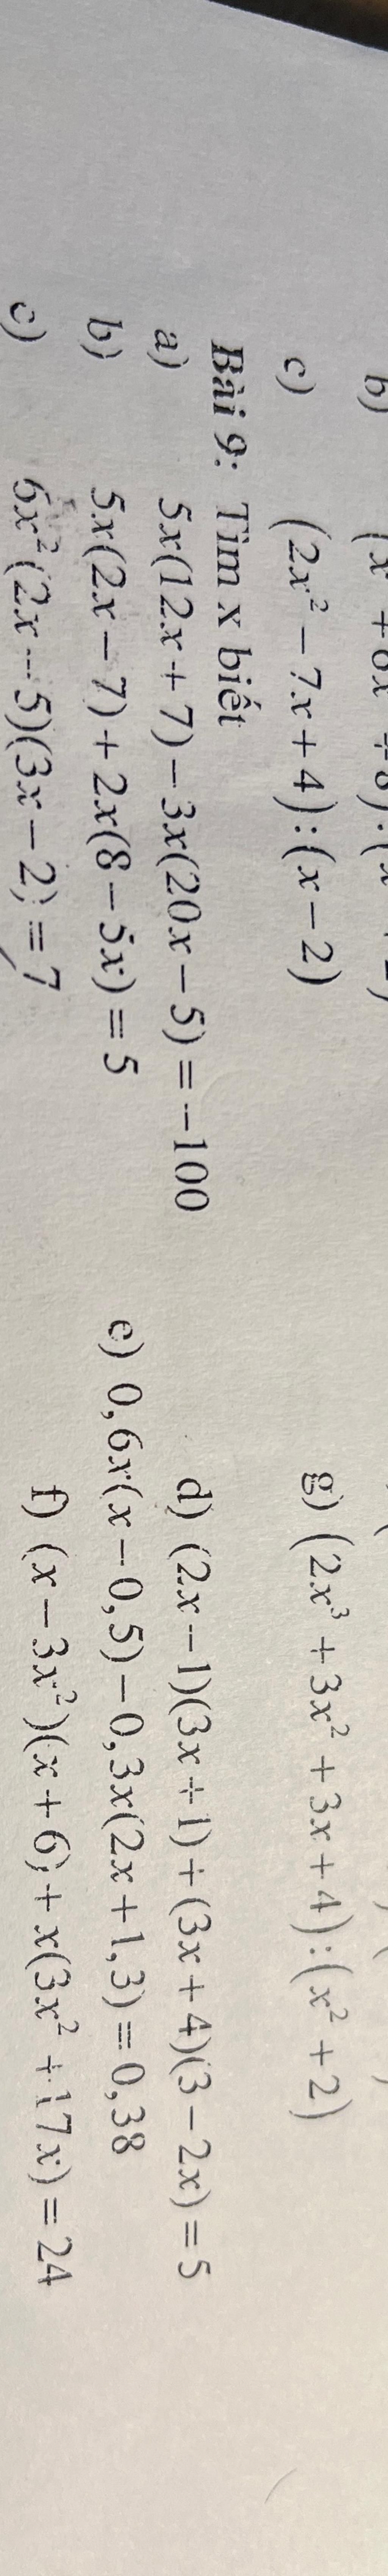 b)
c) (2x² − 7x + 4):(x − 2)
g) (2x³ + 3x² + 3x + 4):(x² + 2)
Bài 9: Tìm x biết
a) 5x(12x + 7) − 3x(20x − 5) = −100
d) (2x − 1)(3x + 1) + (3x + 4)(3 − 2x) = 5
b) 5x(2x − 7) + 2x(8 − 5x) = 5
e) 0,6x(x − 0,5) − 0,3x(2x + 1,3) = 0,38
c) 6x²(2x − 5)(3x − 2) = 7
f) (x − 3x²)(x + 6) + x(3x² + 17x) = 24